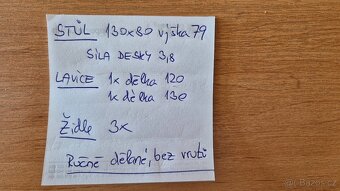 STŮL 130x80 výška 79
SÍLA DESKY 3,8
LAVICE 1x délka 120
1x délka 130
Židle 3x
Ručně dělané, bez vrutů